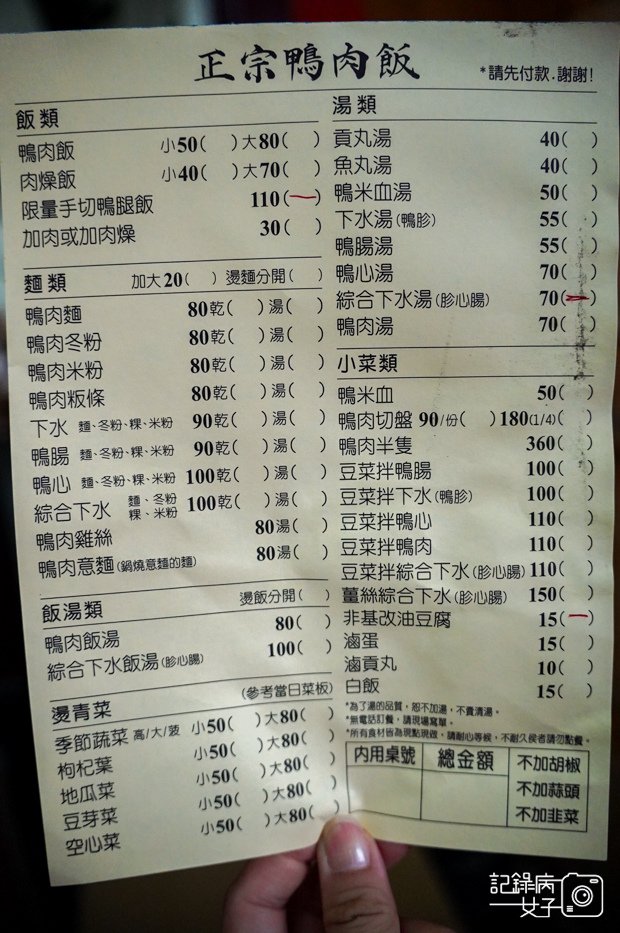 正宗鴨肉飯
*請先付款.謝謝!
飯類
鴨肉飯 小50( )大80( )
肉燥飯 小40( )大70( )
限量手切鴨腿飯 110(一)
加肉或加肉燥 30( )
麵類 加大20( )燙麵分開( )
鴨肉麵 80乾( )湯( )
鴨肉冬粉 80乾( )湯( )
鴨肉米粉 80乾( )湯( )
鴨肉粄條 80乾( )湯( )
下水 麵、冬粉、粿、米粉 90乾( )湯( )
鴨腸 麵、冬粉、粿、米粉 90乾( )湯( )
鴨心 麵、冬粉、粿、米粉 100乾( )湯( )
綜合下水 麵、冬粉 粿、米粉 100乾( )湯( )
鴨肉雞絲 80湯( )
鴨肉意麵(鍋燒意麵的麵) 80湯( )
飯湯類 燙飯分開( )
鴨肉飯湯 80( )
綜合下水飯湯(胗心腸) 100( )
燙青菜 (參考當日菜板)
季節蔬菜 高/大/菠 小50( )大80( )
枸杞葉 小50( )大80( )
地瓜菜 小50( )大80( )
豆芽菜 小50( )大80( )
空心菜 小50( )大80( )
湯類
貢丸湯 40( )
魚丸湯 40( )
鴨米血湯 50( )
下水湯(鴨胗) 55( )
鴨腸湯 55( )
鴨心湯 70( )
綜合下水湯(胗心腸) 70(一)
鴨肉湯 70( )
小菜類
鴨米血 50( )
鴨肉切盤 90/份( )180(1/4)( )
鴨肉半隻 360( )
豆菜拌鴨腸 100( )
豆菜拌下水(鴨胗) 100( )
豆菜拌鴨心 110( )
豆菜拌鴨肉 110( )
豆菜拌綜合下水(胗心腸) 110( )
薑絲綜合下水(胗心腸) 150( )
非基改油豆腐 15(一)
滷蛋 15( )
滷貢丸 10( )
白飯 15( )
*為了湯的品質，恕不加湯，不賣清湯。
*無電話訂餐，請現場寫單。
*所有食材皆為現點現做，請耐心等候，不耐久侯者請勿點餐。
內用桌號 總金額 不加胡椒
不加蒜頭
不加韭菜
記錄病
女子